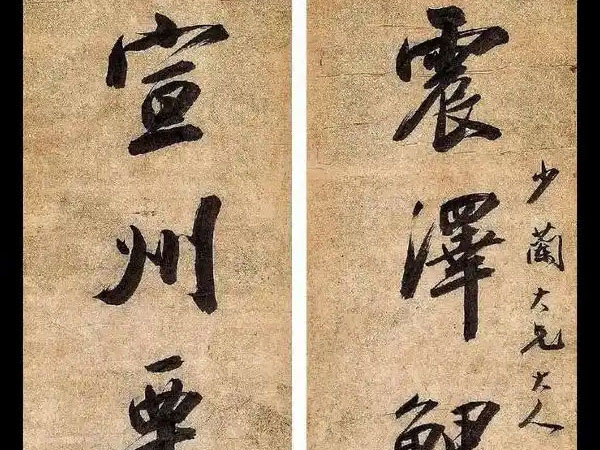 震澤
少蘭大兄大人
宣州栗